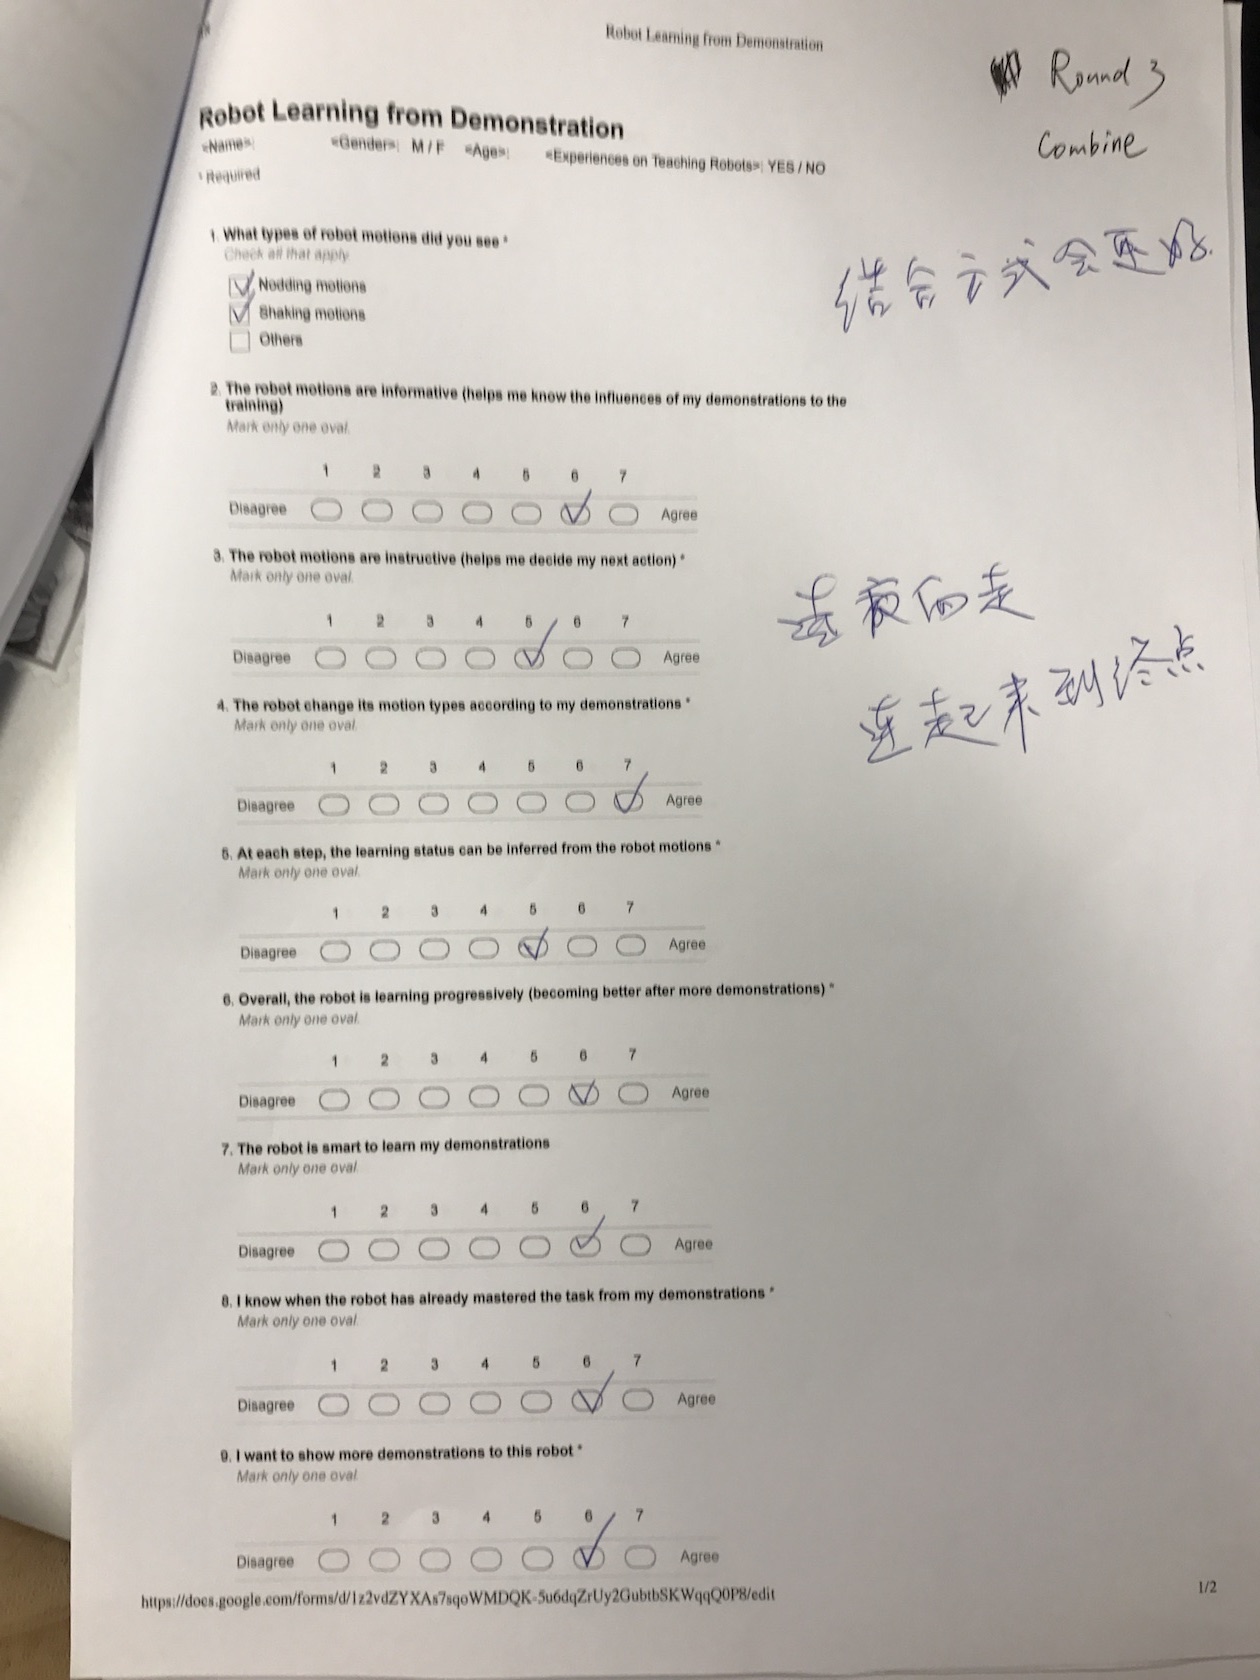 Robot Learning from Demonstration
Round 3
Combine
Robot Learning from Demonstration
<Name>: <Gender>: M / F <Age>: <Experiences on Teaching Robots>: YES / NO
* Required
结合方式会更好.
1. What types of robot motions did you see *
Check all that apply.
Nodding motions
Shaking motions
Others
2. The robot motions are informative (helps me know the influences of my demonstrations to the
training)
Mark only one oval.
1 2 3 4 5 6 7
Disagree Agree
3. The robot motions are instructive (helps me decide my next action) *
Mark only one oval.
1 2 3 4 5 6 7
Disagree Agree
走
连起来到终点
4. The robot change its motion types according to my demonstrations *
Mark only one oval.
1 2 3 4 5 6 7
Disagree Agree
5. At each step, the learning status can be inferred from the robot motions *
Mark only one oval.
1 2 3 4 5 6 7
Disagree Agree
6. Overall, the robot is learning progressively (becoming better after more demonstrations) *
Mark only one oval.
1 2 3 4 5 6 7
Disagree Agree
7. The robot is smart to learn my demonstrations
Mark only one oval.
1 2 3 4 5 6 7
Disagree Agree
8. I know when the robot has already mastered the task from my demonstrations *
Mark only one oval.
1 2 3 4 5 6 7
Disagree Agree
9. I want to show more demonstrations to this robot *
Mark only one oval.
1 2 3 4 5 6 7
Disagree Agree
https://docs.google.com/forms/d/1z2vdZYXAs7sqoWMDQK-5u6dqZrUy2GubtbSKWqqQ0P8/edit
1/2